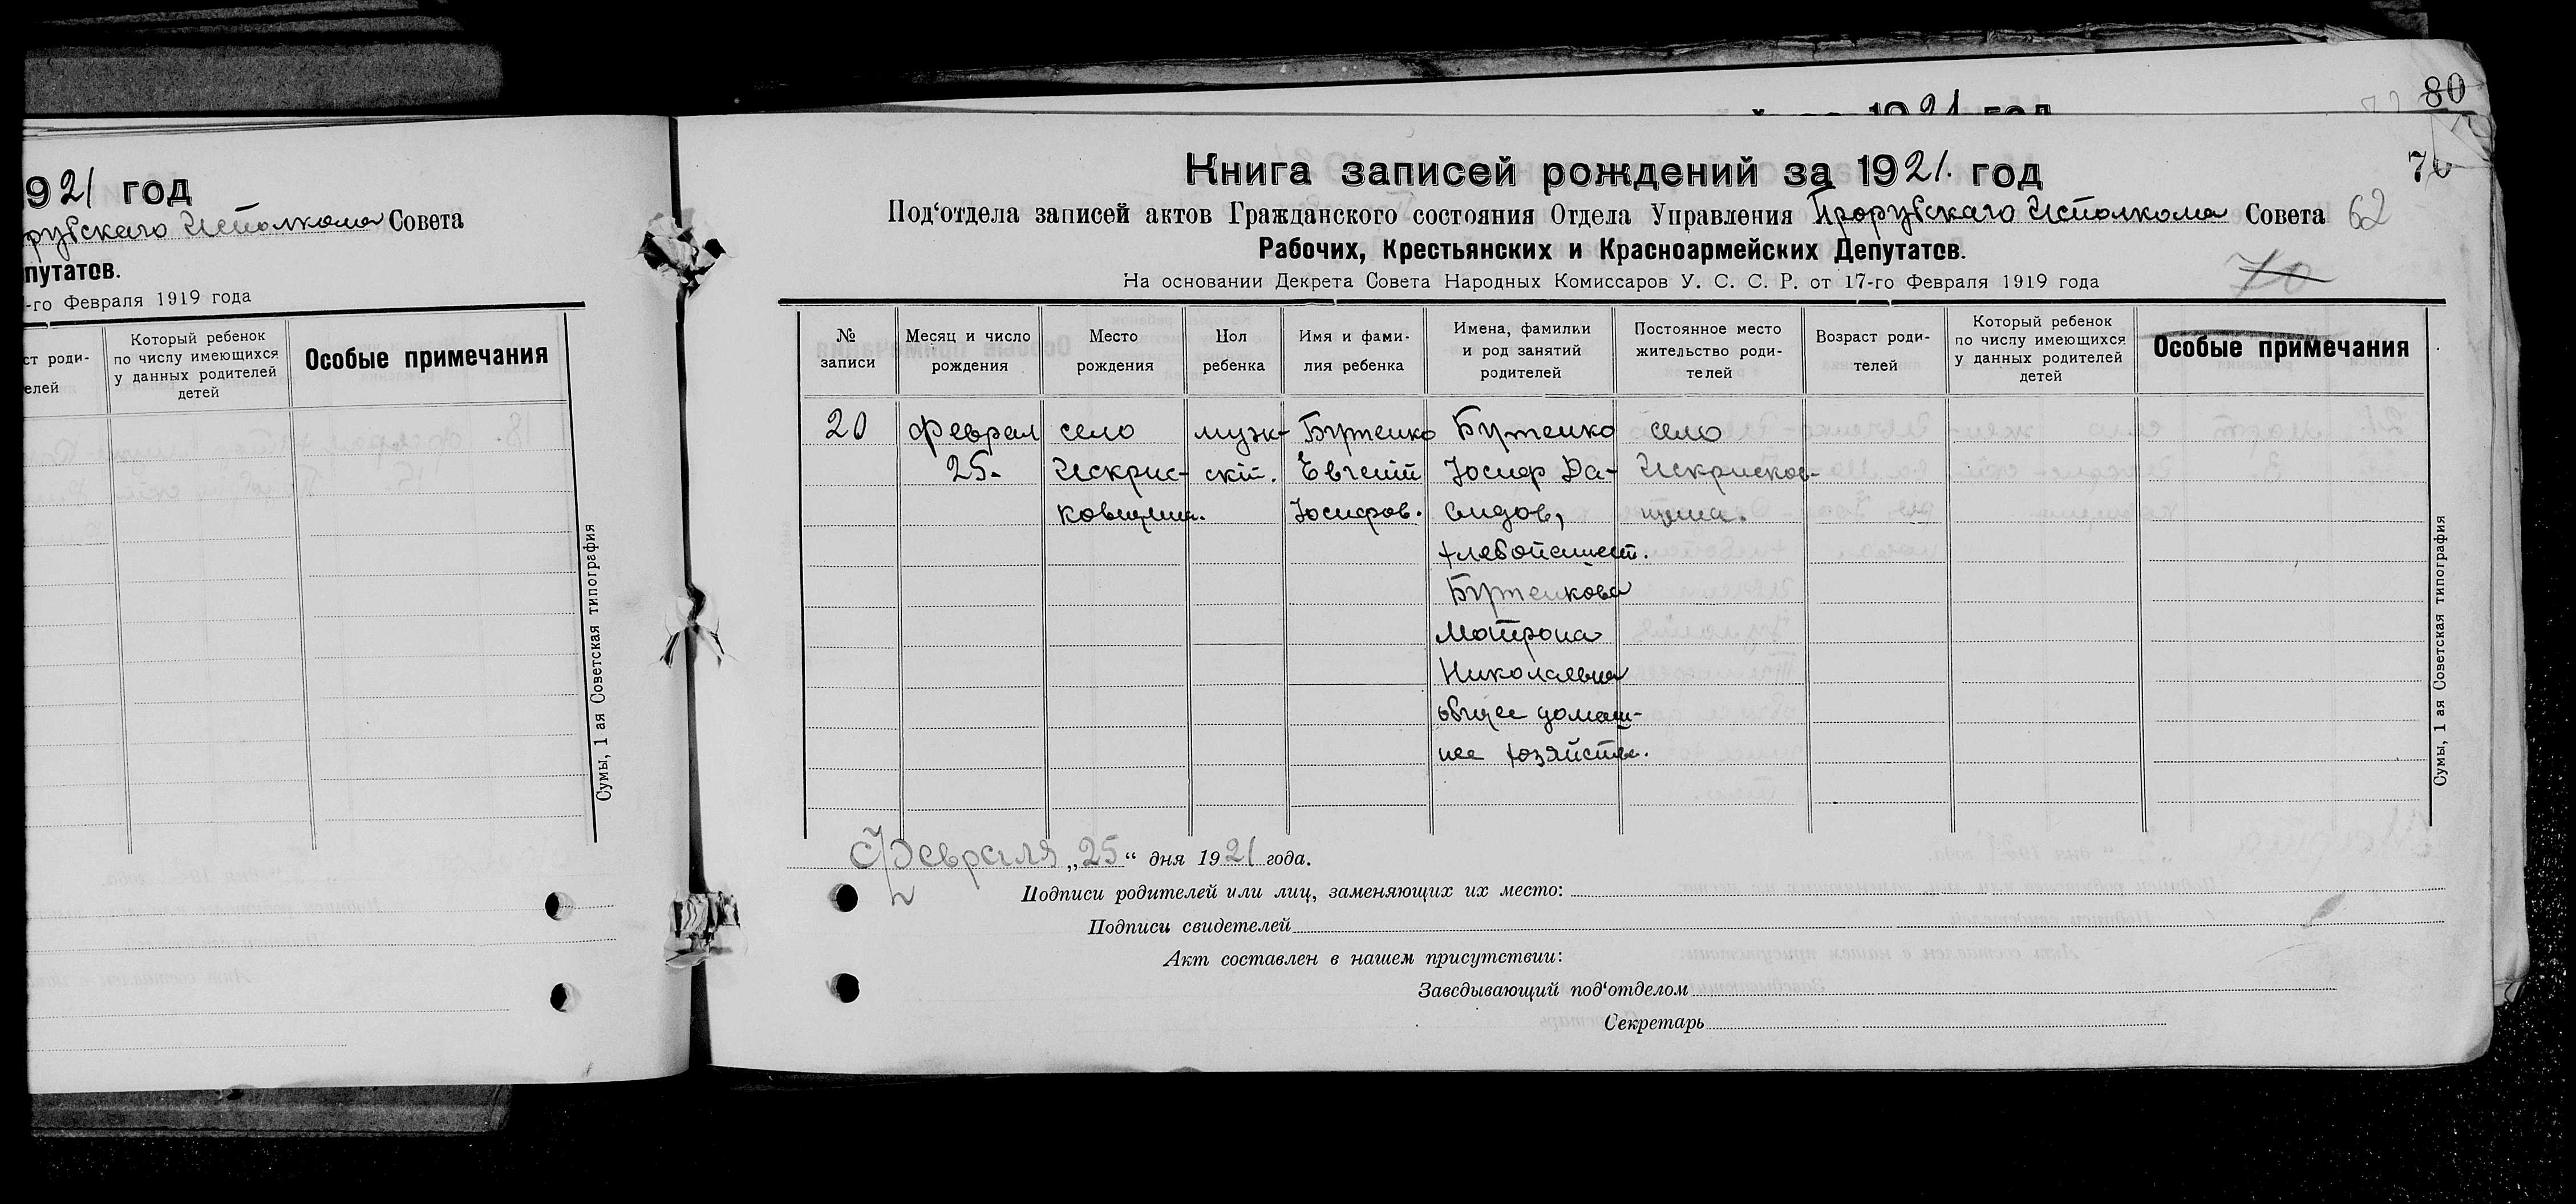 921 год
рубскаго Исполкома Совета
путатов.
-го Февраля 1919 года
ст роди-
елей
Который ребенок
по числу имеющихся
у данных родителей
детей
Особые примечания
Сумы, 1 ая Советская типография
1921 год
80
Книга записей рождений за 1921. год
Под‘отдела записей актов Гражданского состояния Отдела Управления Прорубскаго Исполкома Совета 62
Рабочих, Крестьянских и Красноармейских Депутатов.
70
На основании Декрета Совета Народных Комиссаров У. С. С. Р. от 17-го Февраля 1919 года
№
записи
Месяц и число
рождения
Место
рождения
Пол
ребенка
Имя и фами-
лия ребенка
Имена, фамилии
и род занятий
родителей
Постоянное место
жительство роди-
телей
Возраст роди-
телей
Который ребенок
по числу имеющихся
у данных родителей
детей
Особые примечания
20
феврал
25.
село
Искрис-
ковщина.
муж-
скій.
Бутенко
Евгеній
Іосифов.
Бутенко
Іосиф Да-
видов,
хлебопашест.
Бутенкова
Матрона
Николаевна
общее домаш-
нее хозяйство.
село
Искрисков-
щина.
Сумы, 1 ая Советская типография
Февраля „25“ дня 1921 года.
Подписи родителей или лиц, заменяющих их место:
Подписи свидетелей
Акт составлен в нашем присутствии:
Заведывающий под‘отделом
Секретарь